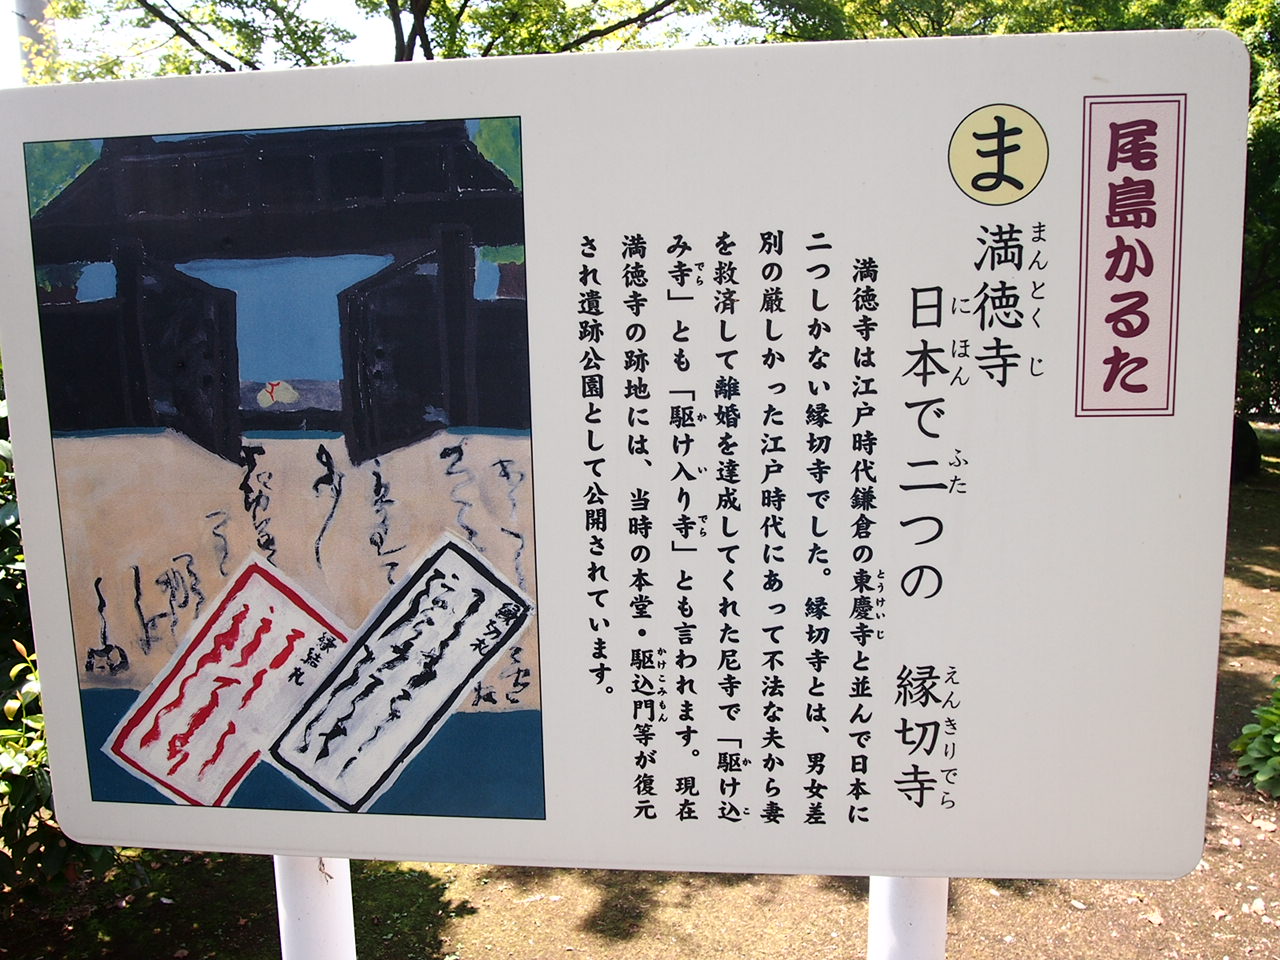 尾島かるた
ま
満徳寺
まんとくじ
日本で二つの 縁切寺
にほん ふた えんきりでら
満徳寺は江戸時代鎌倉の東慶寺と並んで日本に
とうけいじ
二つしかない縁切寺でした。縁切寺とは、男女差
別の厳しかった江戸時代にあって不法な夫から妻
を救済して離婚を達成してくれた尼寺で「駆け込
か こ
み寺」とも「駆け入り寺」とも言われます。現在
でら か い でら
満徳寺の跡地には、当時の本堂・駆込門等が復元
かけこみもん
され遺跡公園として公開されています。
縁切札
縁結札